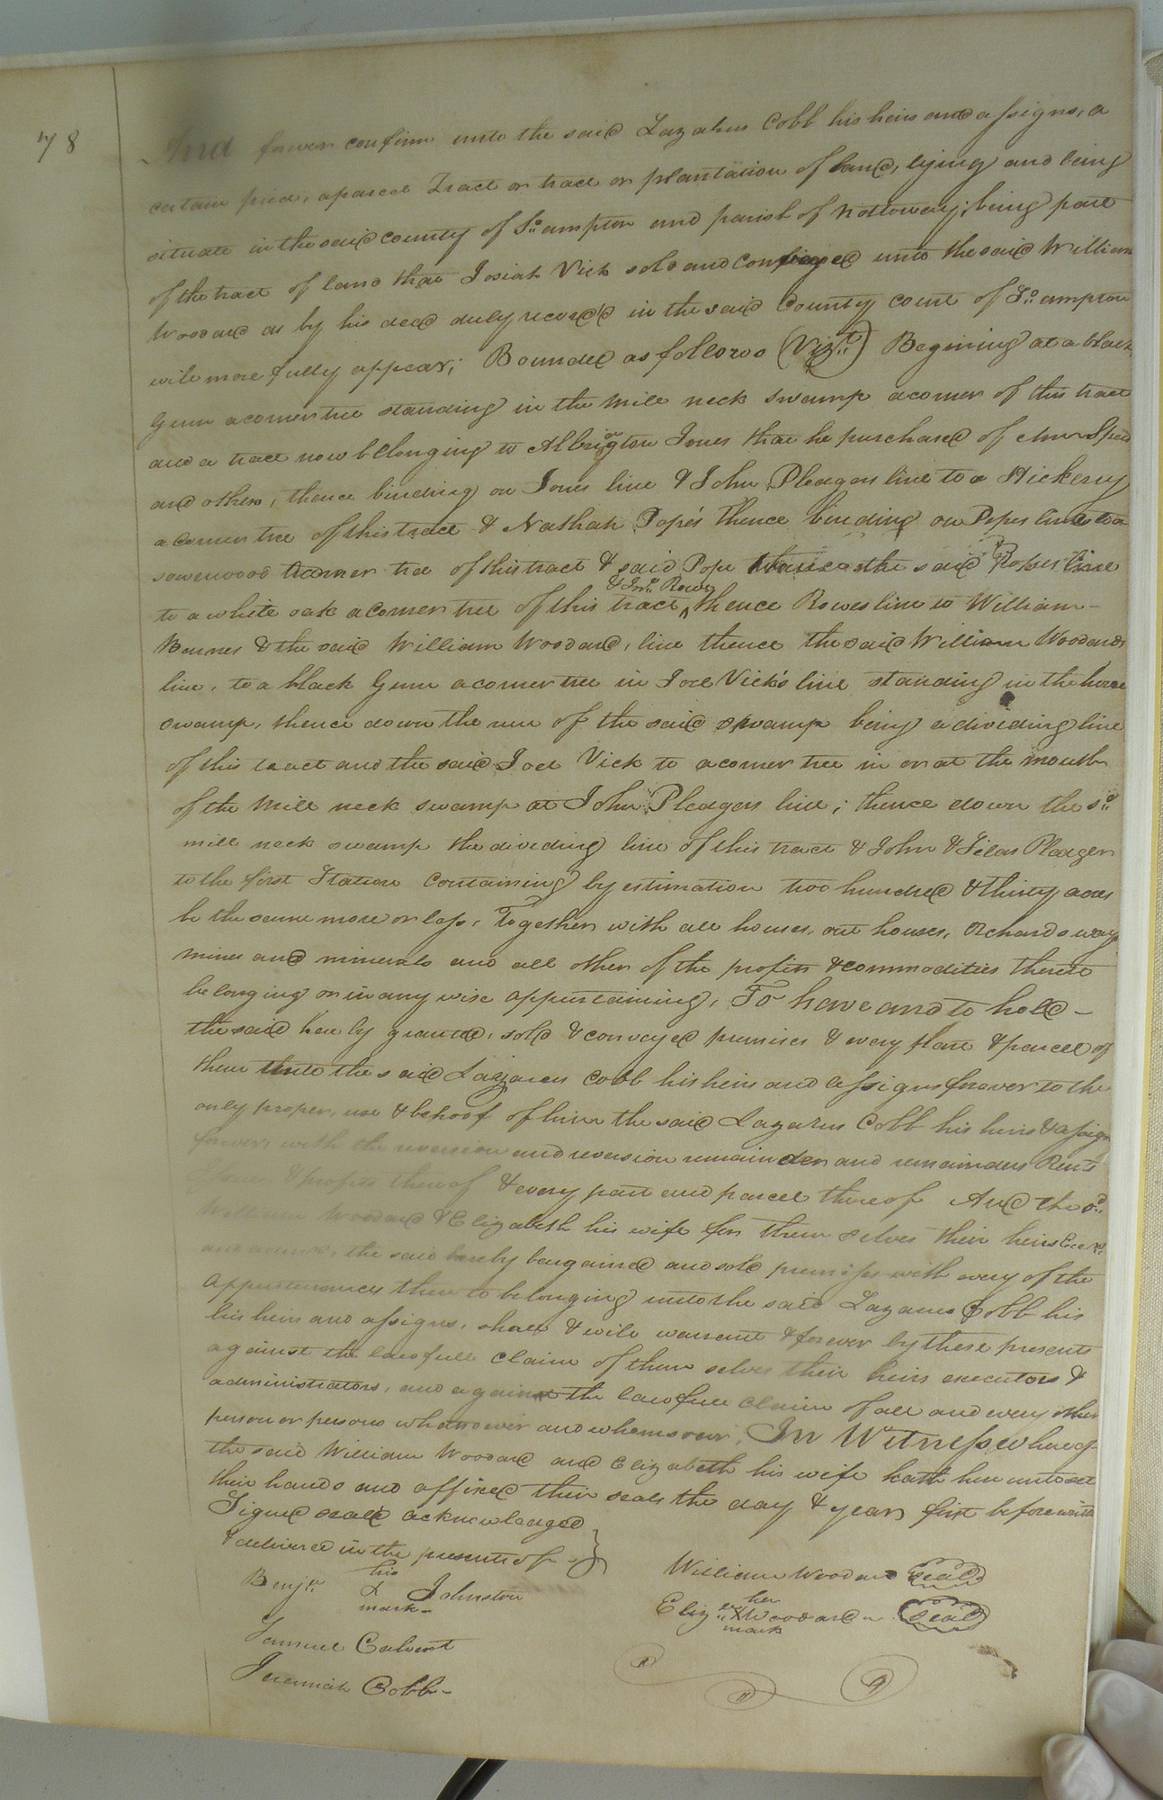 78
And forever confirm unto the said Lazarus Cobb his heirs and assigns, a
certain piece, a parcel Tract or tract or plantation of land, lying and being
situate in the said county of So. ampton and parish of Nottoway; being part
of the tract of land that Josiah Vick sold and conveyed unto the said William
Woodard as by his deed duly recorded in the said County court of So. ampton
will more fully appear; Bounded as follows (Vizt.) Begining at a black
Gum a corner tree standing in the mill neck swamp a corner of this tract
and a tract now belonging to Albrigton Jones that he purchased of
and others, thence binding on Jones line & John Pledgers line to a Hickery
a corner tree of this tract & Nathan Pope's thence binding on Popes line to a
sowerwood corner tree of this tract & said Pope thence the said Popes line
to a white oak a corner tree of this tract & Jno. Rowe, thence Rowes line to William
Barnes & the said William Woodard, line thence the said William Woodards
line, to a black Gum a corner tree in Joel Vick's line standing in the horse
swamp, thence down the run of the said swamp being a dividing line
of this tract and the said Joel Vick to a corner tree in or at the mouth
of the mill neck swamp at John Pledgers line; thence down the sd.
mill neck swamp the dividing line of this tract & John & Silas Pledger
to the first Station containing by estimation two hundred & thirty acres
be the same more or less, Together with all houses, out houses, Orchards ways
mines and minerals and all other of the profits & commodities thereto
belonging or in any wise appertaining, To have and to hold -
the said hereby granted, sold & conveyed premises & every part & parcel of
them unto the said Lazarus Cobb his heirs and assigns forever to the
only proper, use & behoof of him the said Lazarus Cobb his heirs & assigns
forever with the reversion and reversion remainder and remainders Rents
& profits thereof & every part and parcel thereof And the sd.
William Woodard & Elizabeth his wife for them selves their heirs
the said hereby bargained and sold premises with every of the
appurtenances there to belonging unto the said Lazarus Cobb his
his heirs and assigns, shall & will warrant & forever by these presents
against the lawfull claim of them selves their heirs executors &
administrators, and against the lawfull claim of all and every other
person or persons whatsoever and whomsoever. In Witness whereof
the said William Woodard and Elizabeth his wife hath here unto set
their hands and affixed their seals the day & year first before written
Signed seald acknowledged
& delivered in the presents of
Benja. his X mark Johnston
Samuel Calvert
Jeremiah Cobb
William Woodard seal
Elizth. her X mark Woodard seal